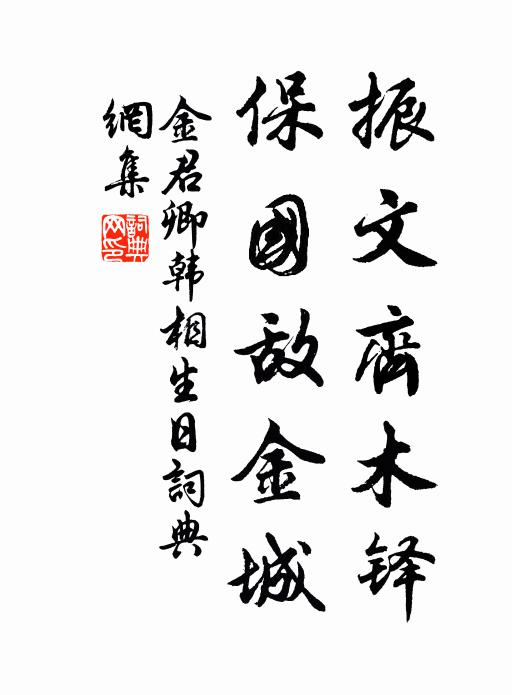 振文齊木铎
保國敌金城
金君卿韩相生日詞典
網集
詞典
网印